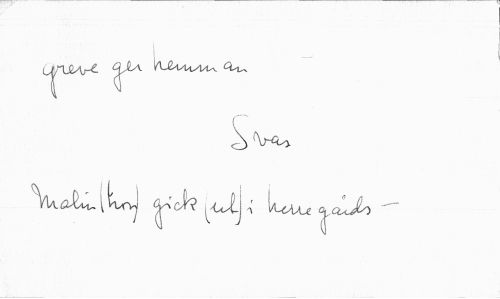 greve ger hemman
Svas
Malin (hon) gick (ut) i herregårds-